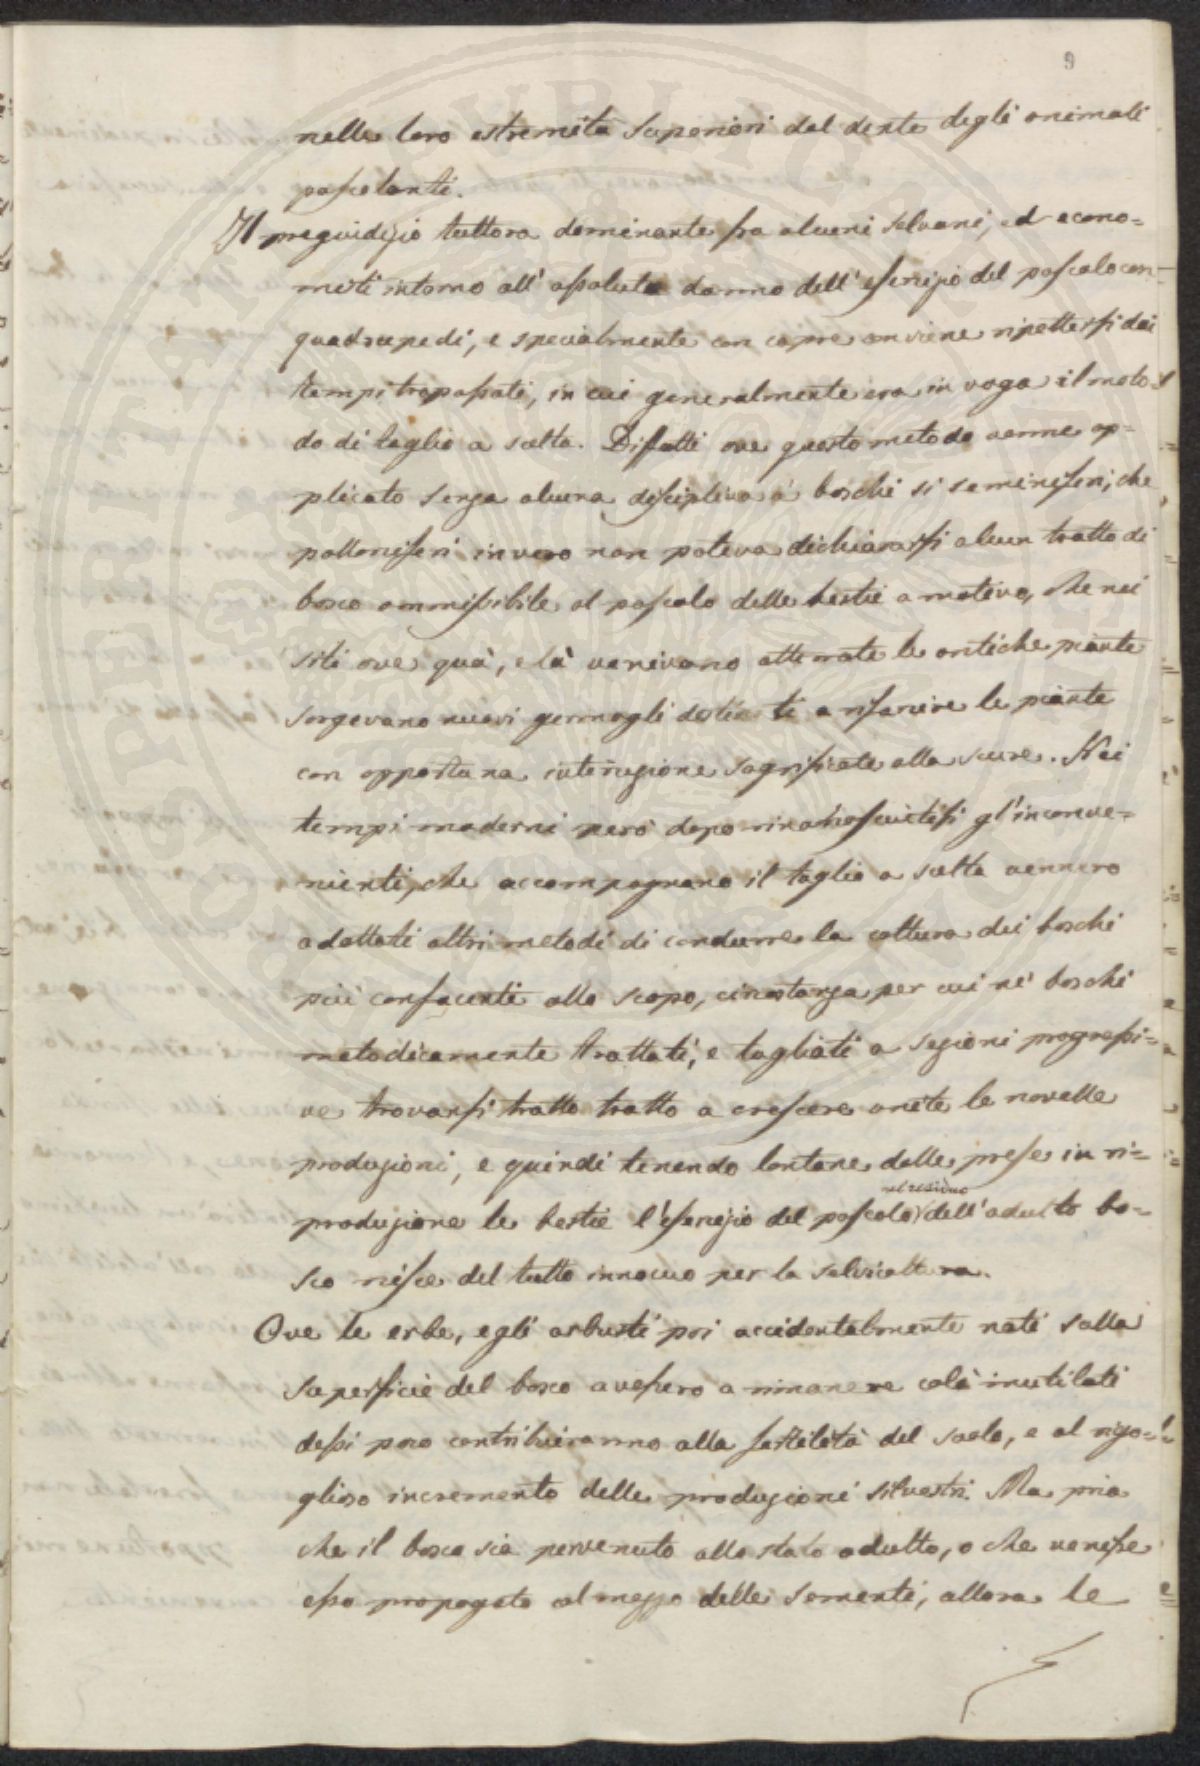 9
nelle loro estremità superiori dal dente degli animali
pascolanti.
Il preguidizio tuttora dominante fra alcuni selvani, ed econo=
misti intorno all'assoluto danno dell'esercizio del pascolo con
quadrupedi, e specialmente con capre conviene ripettersi dai
tempi trapassati, in cui generalmente era in voga il meto=
do di taglio a scelta. Diffatti ove questo metodo venne ap=
plicato senza alcuna disciplina a' boschi si seminiferi, che
polloniferi in vero non poteva dichiararsi alcun tratto di
bosco ammissibile al pascolo delle bestie a motivo, che nei
siti ove quà, e là venivano atterrate le antiche piante
sorgevano nuovi germogli destinati a risarcire le piante
con opportuna interuzione sagrificate alla scure. Nei
tempi moderni però dopo riconosciutisi gl'inconve=
nienti, che accompagnano il taglio a scelta vennero
adottati altri metodi di condurre la coltura dei boschi
più confacenti allo scopo, circostanza per cui ne' boschi
metodicamente trattati, e tagliati a sezioni progressi=
ve trovansi tratto tratto a crescere unite le novelle
produzioni, e quindi tenendo lontane dalle prese in ri=
produzione le bestie l'esercizio del pascolo nel residuo dell'adulto bo=
sco riesce del tutto innocuo per la selvicoltura.
Ove le erbe, e gli arbusti poi accidentalmente nati sulla
superficie del bosco avessero a rimanere colà inutilati
dessi poco contribuiranno alla fertilità del suolo, e al rigo=
glioso incremento delle produzioni silvestri. Ma pria
che il bosco sia pervenuto allo stato adulto, o che venisse
esso propagato al mezzo delle sementi, allora le